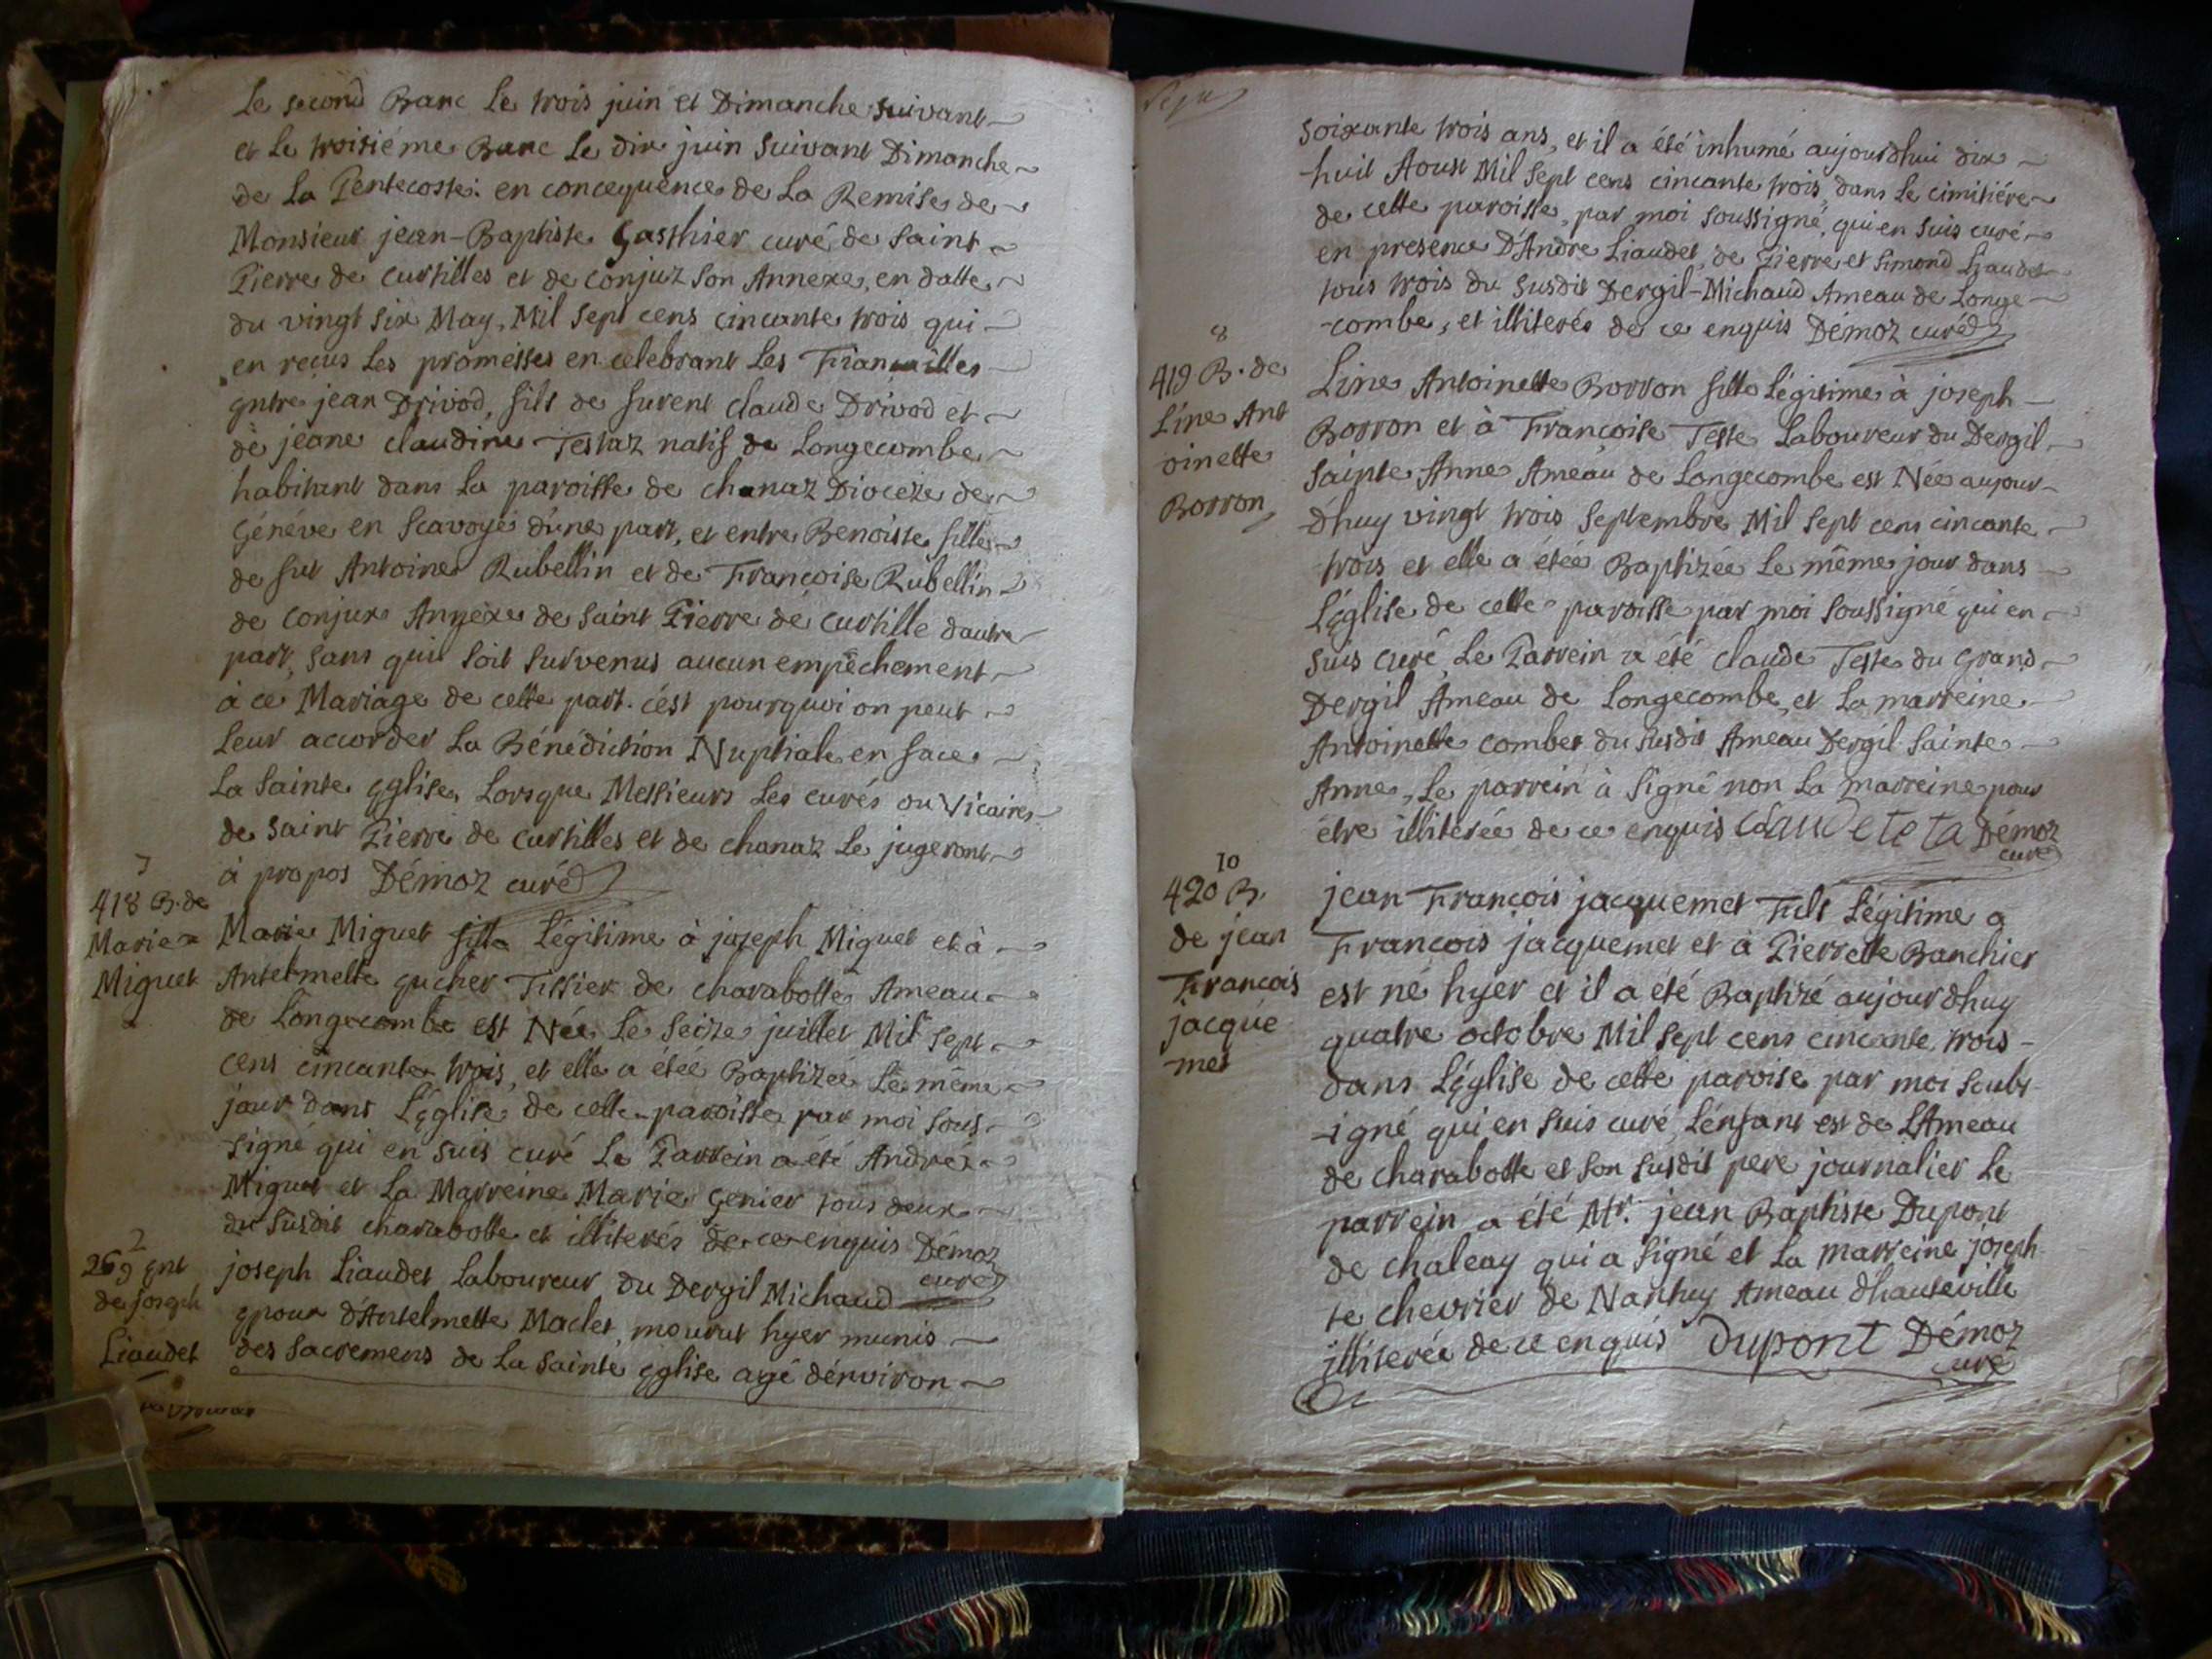 Le second Banc Le trois juin et Dimanche suivant
et Le troisiéme Banc Le dix juin suivant Dimanche
de La Pentecoste: en concequence de La Remise de
Monsieur jean-Baptiste Gasthier curé de saint
Pierre de curtilles et de conjuz son Annexe, en datte
du vingt six May, Mil sept cens cincante trois qui
en reçus Les promesses en celebrant Les Fiancailles
entre jean Drivod, fils de furent claude Drivod et
de jeane claudine Testaz natif de Longecombe
habitant dans La paroisse de chanaz Dioceze de
Généve en Scavoye d'une part, et entre Benoiste fille
de fut Antoine Rubellin et de Francoise Rubellin
de conjux Annéxe de saint Pierre de curtille dautre
part, sans quil soit survenus aucun empêchement
à ce Mariage de cette part. c'ést pourquoi on peut
Leur accorder La Bénédiction Nuptiale en face
La Sainte église, Lorsque Messieurs Les curés ou Vicaires
de saint Pierre de curtilles et de chanaz Le jugeront
à propos Démoz curé
7
418 B. de
Marie
Miguet
Marie Miguet fille Légitime à jozeph Miguet et à
Antelmette gucher Tissier de charabotte Ameau
de Longecombe est Née Le seize juillet Mil sept
cens cincante trois, et elle a étée Baptizée Le même
jour dans L'église de cette paroisse par moi sous-
signé qui en suis curé Le Parrein a été André
Miguet et La Marreine Marie genier tous deux
du susdit charabotte et illiterés de ce enquis Démoz
curé
2
269 ent
de joseph
Liaudet
joseph Liaudet Laboureur du Dergil Michaud
epoux d'Antelmette Maclet, mourut hyer munis
des sacremens de La sainte eglise agé dénviron
soixante trois ans, et il a été inhumé aujourdhui dix
-huit Aoust Mil sept cens cincante trois, dans Le cimitiére
de cette paroisse, par moi soussigné, qui en suis curé
en presence D'André Liaudet, de Pierre et simond Liaudet
tous trois du susdit Dergil-Michaud Ameau de Longe
-combe, et illiterés de ce enquis Démoz curé
8
419 B. de
Line Ant
oinette
Borron
Line Antoinette Borron fille Légitime à joseph
Borron et à Francoise Teste Laboureur du Dergil
Sainte Anne Ameau de Longecombe est Née aujour-
d'huy vingt trois septembre Mil sept cens cincante
trois et elle a étée Baptizée Le même jour dans
L'église de cette paroisse par moi soussigné qui en
suis curé, Le Parrein a été claude Teste du Grand
Dergil Ameau de Longecombe, et La marreine
Antoinette combet du susdit Ameau Dergil Sainte
Anne, Le parrein à signé non La marreine pour
etre illiterée de ce enquis Démoz
curé
10
420 B.
de jean
Francois
jacque
met
jean Francois jacquemet Fils Légitime a
Francois jacquemet et à Pierrette Banchier
est né hyer et il a été Baptizé aujourdhuy
quatre octobre Mil sept cens cincante trois
dans L'église de cette paroise par moi soubs
-igné qui en suis curé, L'enfant est de L'Ameau
de charabotte et son susdit pere journalier Le
parrein a été Mr. jean Baptiste Dupont
de chaleay qui a signé et La marreine joseph
te chevrier de Nanthuy Ameau d'hauteville
illiterée de ce enquis Dupont Démoz
curé